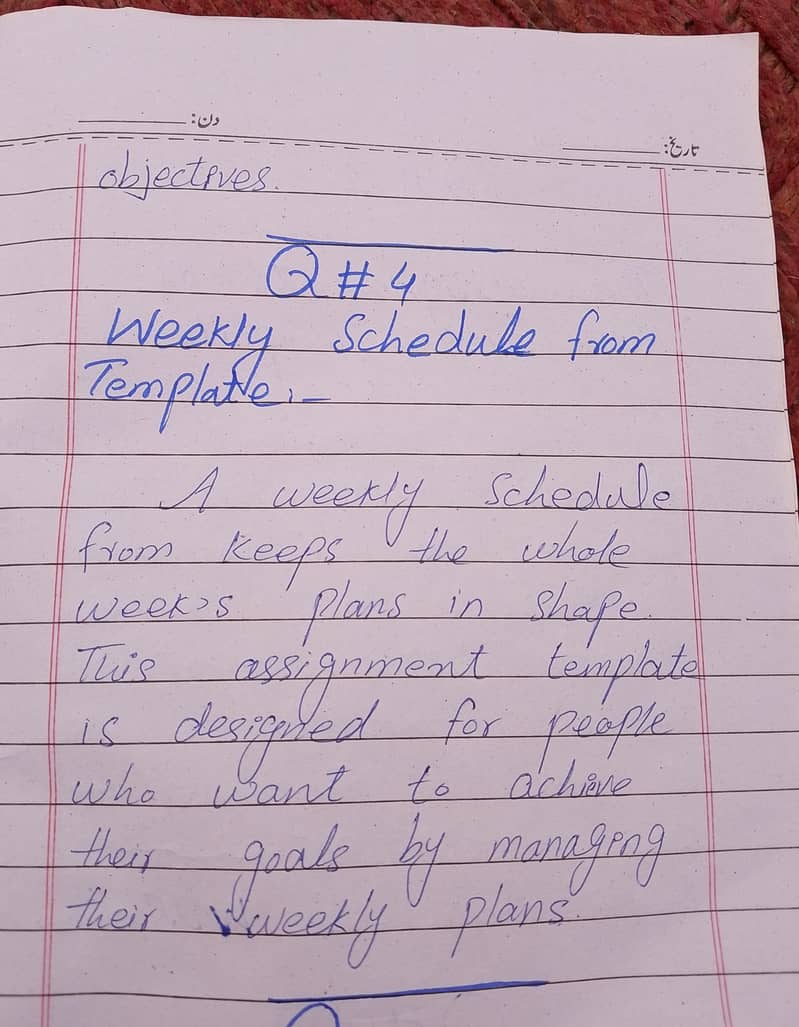 دن:
تاریخ:
objectives.
Q # 4
Weekly Schedule from
Template:-
A weekly Schedule
from keeps the whole
week's plans in shape.
This assignment template
is designed for people
who want to achieve
their goals by managing
their weekly plans.